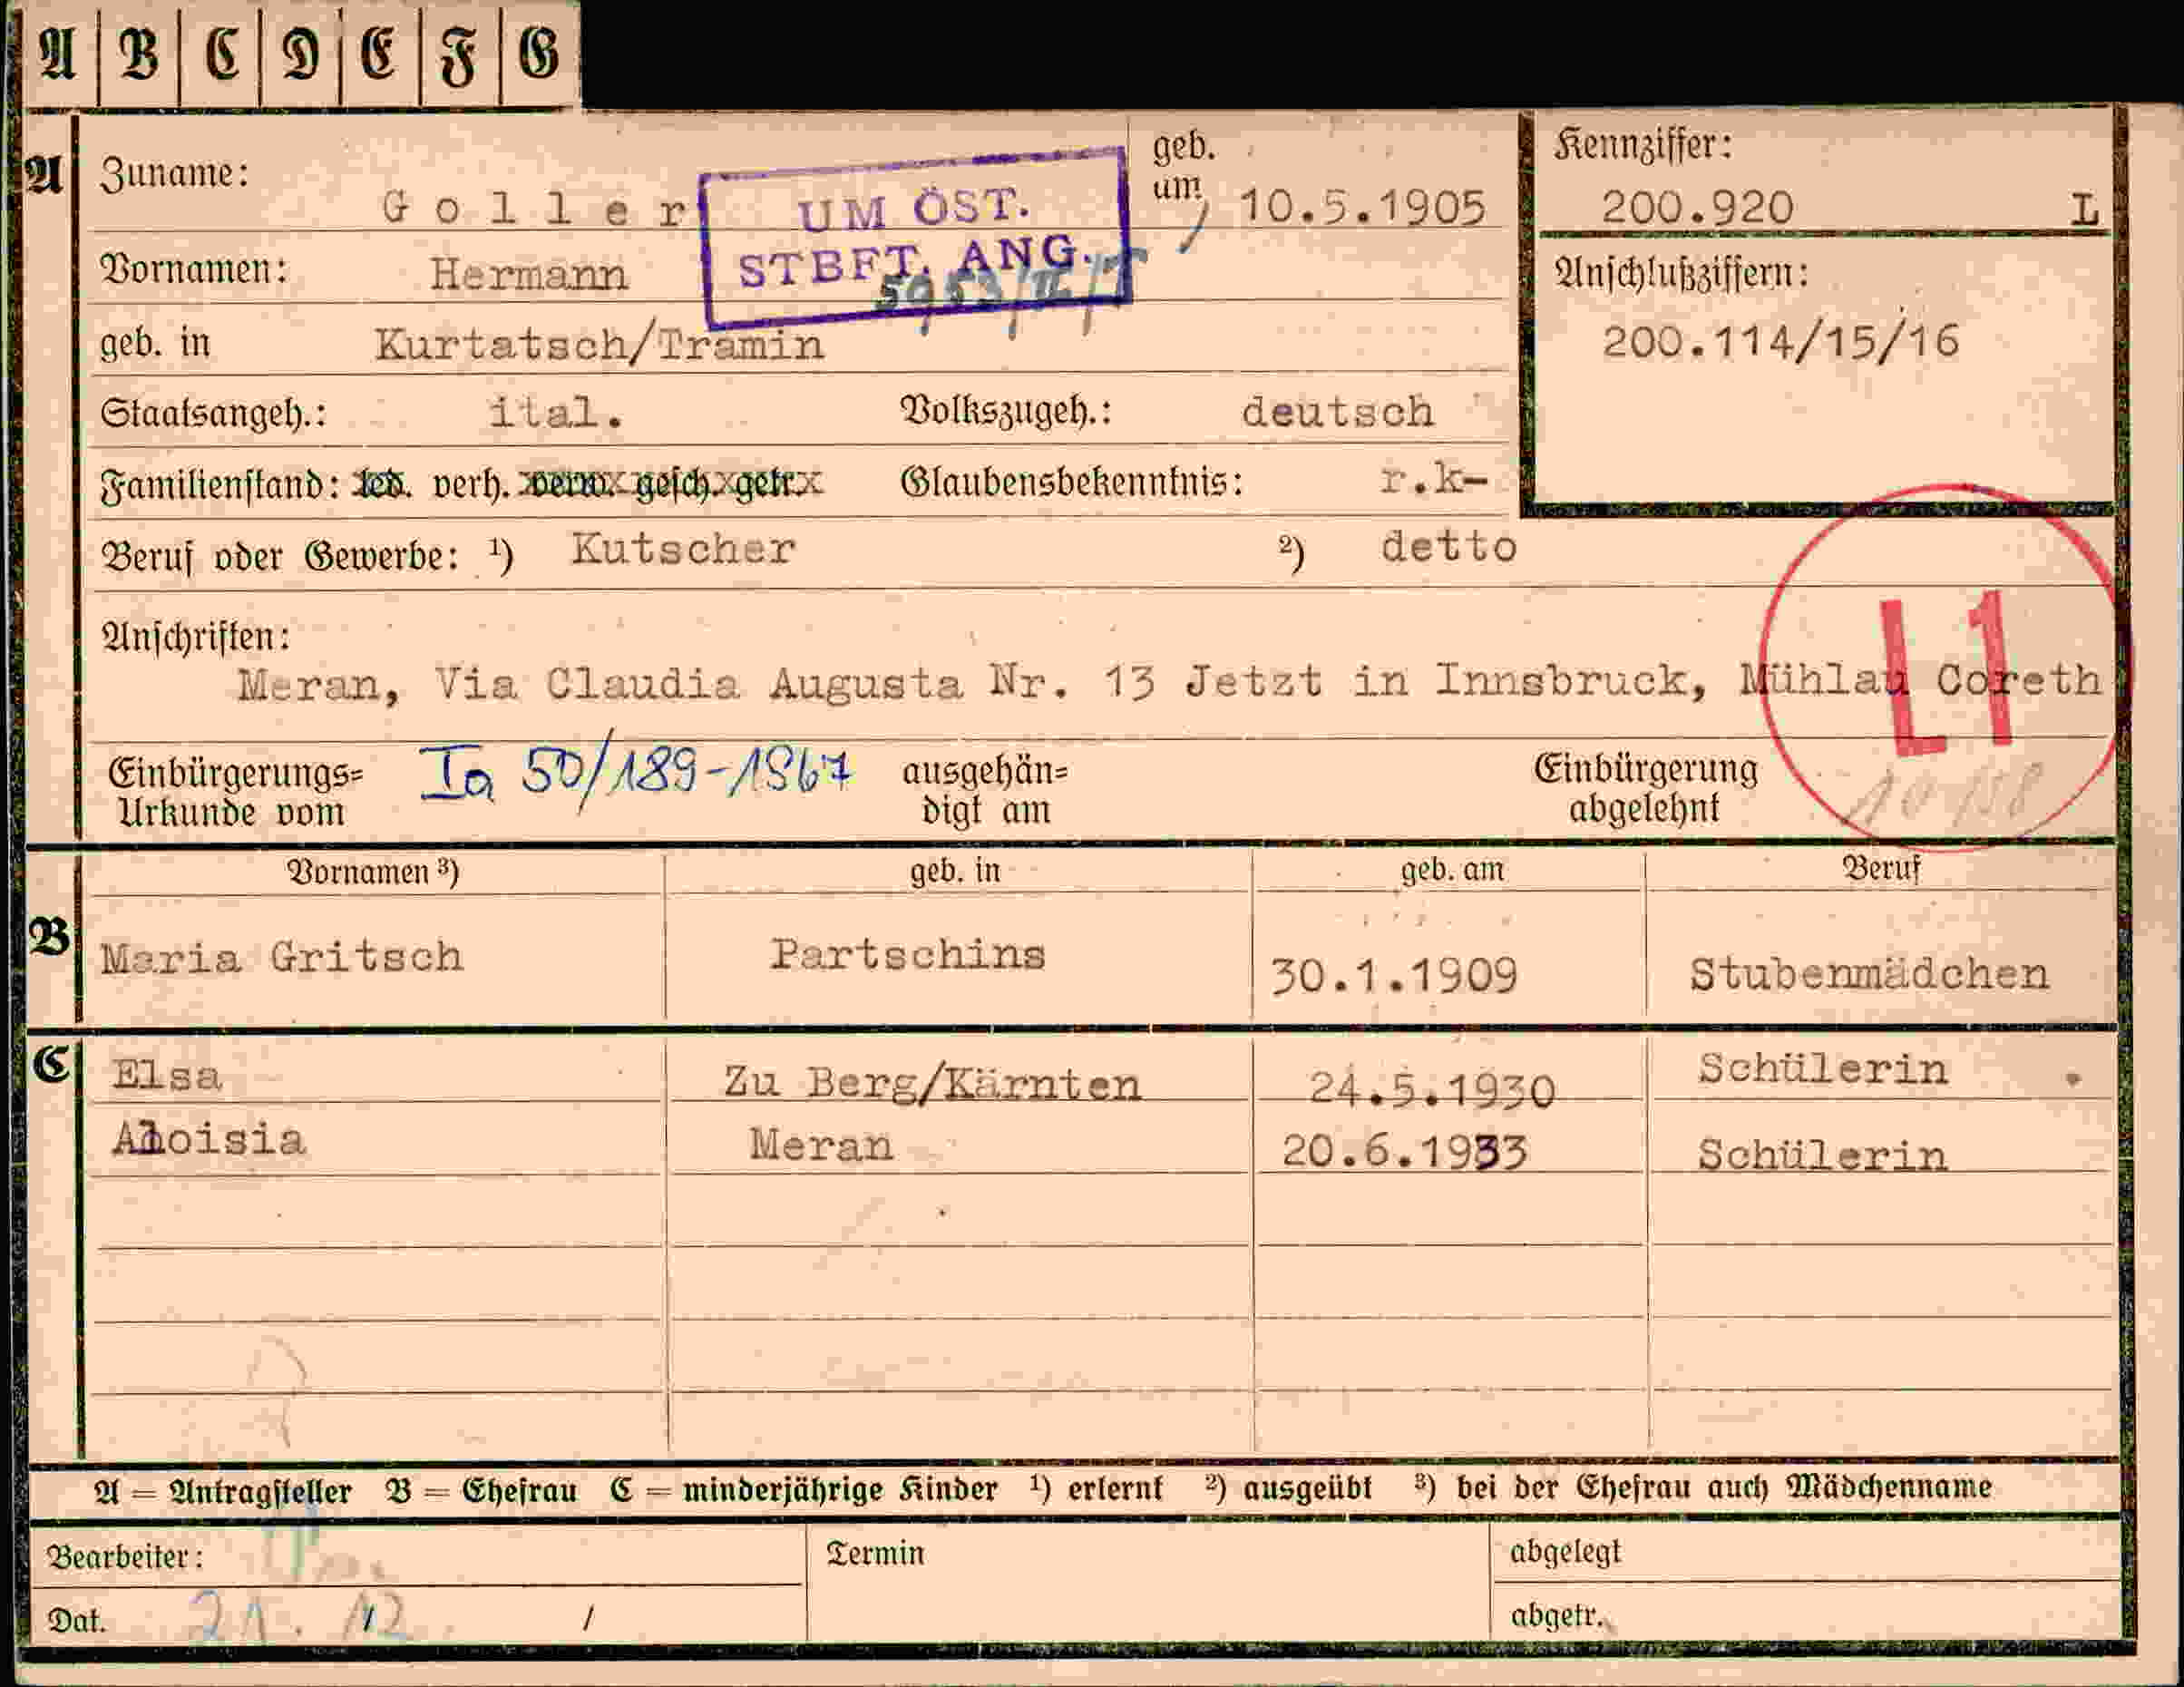 A B C D E F G
A Zuname: Goller geb. um 10.5.1905
UM ÖST.
STBFT. ANG.
Kennziffer:
200.920 L
Vornamen: Hermann
Anschlußziffern:
200.114/15/16
geb. in Kurtatsch/Tramin
Staatsangeh.: ital. Volkszugeh.: deutsch
Familienstand: led. verh. verw. gesch. getr. Glaubensbekenntnis: r.k-
Beruf oder Gewerbe: ¹) Kutscher ²) detto
Anschriften:
Meran, Via Claudia Augusta Nr. 13 Jetzt in Innsbruck, Mühlau Coreth
L1
Einbürgerungs= Ia 50/189-1967 ausgehän= Einbürgerung
Urkunde vom digt am abgelehnt
Vornamen ³) geb. in geb. am Beruf
B Maria Gritsch Partschins 30.1.1909 Stubenmädchen
C Elsa Zu Berg/Kärnten 24.5.1930 Schülerin
Aloisia Meran 20.6.1933 Schülerin
A = Antragsteller B = Ehefrau C = minderjährige Kinder ¹) erlernt ²) ausgeübt ³) bei der Ehefrau auch Mädchenname
Bearbeiter: Termin abgelegt
Dat. 21. 12 / abgetr.